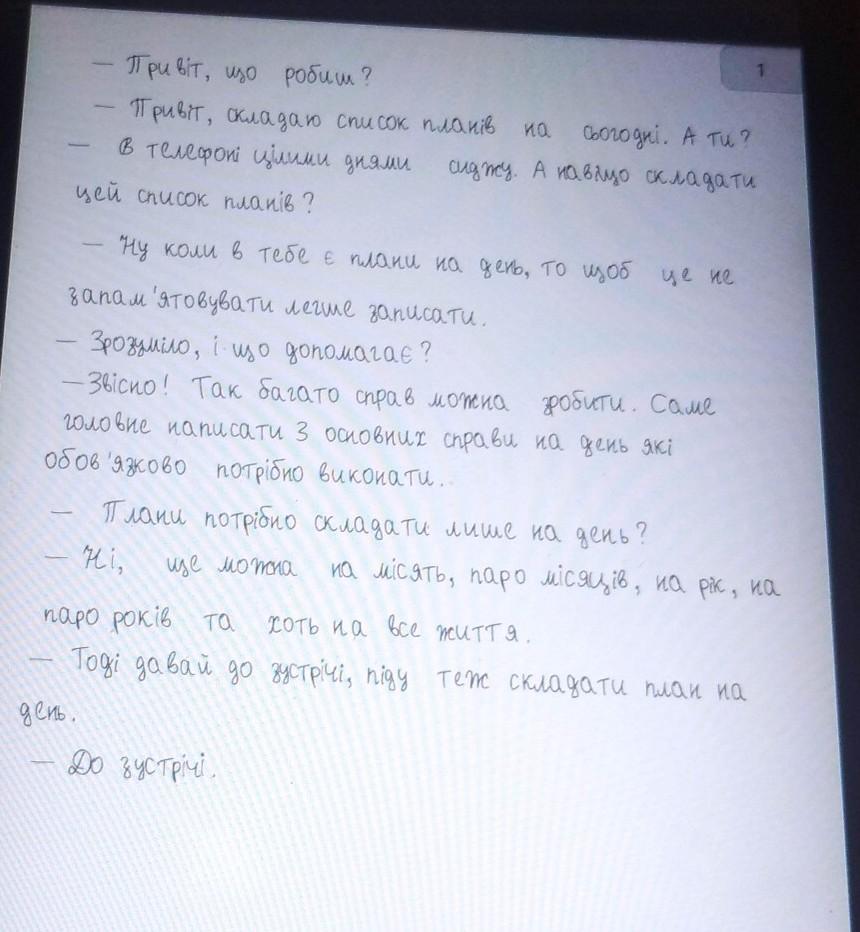 1
— Привіт, що робиш?
— Привіт, складаю список планів на сьогодні. А ти?
— В телефоні цілими днями сиджу. А навіщо складати
цей список планів?
— Ну коли в тебе є плани на день, то щоб це не
запам'ятовувати легше записати.
— Зрозуміло, і що допомагає?
— Звісно! Так багато справ можна зробити. Саме
головне написати 3 основних справи на день які
обов'язково потрібно виконати.
— Плани потрібно складати лише на день?
— Ні, ще можна на місять, паро місяців, на рік, на
паро років та хоть на все життя.
— Тоді давай до зустрічі, піду теж складати план на
день.
— До зустрічі.